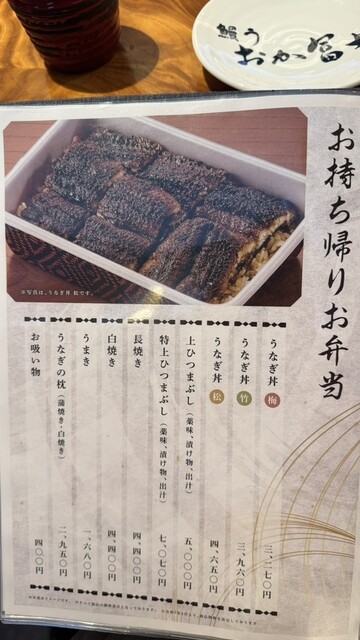 鰻う
おか冨士
お持ち帰りお弁当
※写真は、うなぎ丼 松です。
うなぎ丼 梅 三、二七〇円
うなぎ丼 竹 三、九六〇円
うなぎ丼 松 四、六五〇円
上ひつまぶし（薬味、漬け物、出汁） 五、〇〇〇円
特上ひつまぶし（薬味、漬け物、出汁） 七、〇七〇円
長焼き 四、四〇〇円
白焼き 四、四〇〇円
うまき 一、六八〇円
うなぎの枕（蒲焼き・白焼き） 二、九五〇円
お吸い物 四〇〇円